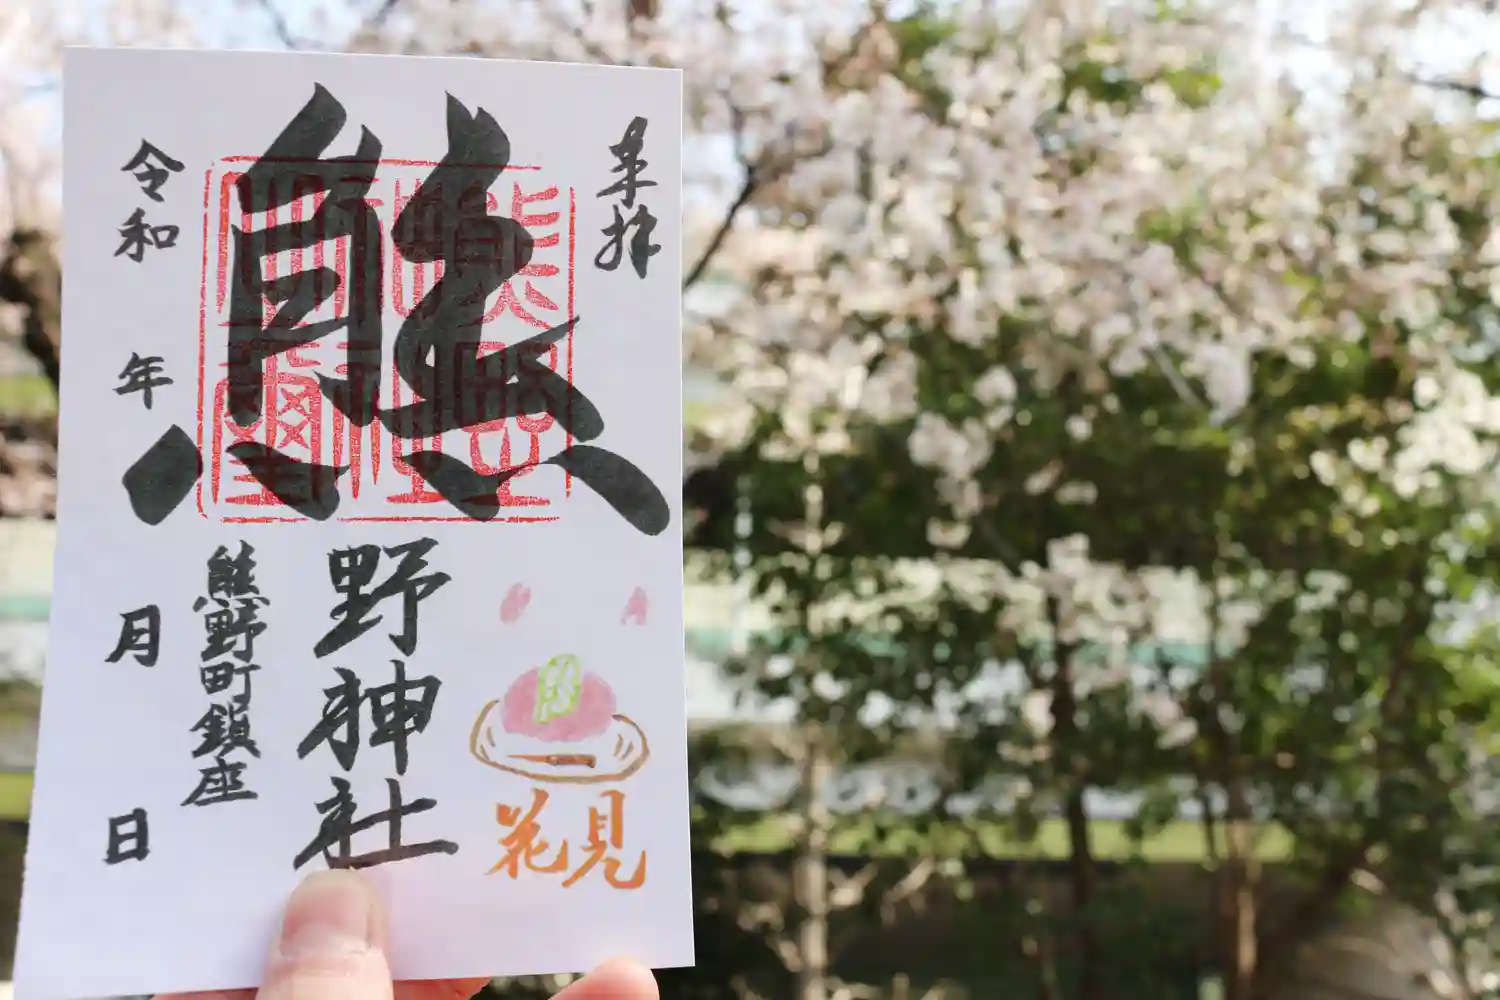 奉拝
花見
熊野神社
熊野町鎮座
令和 年 月 日